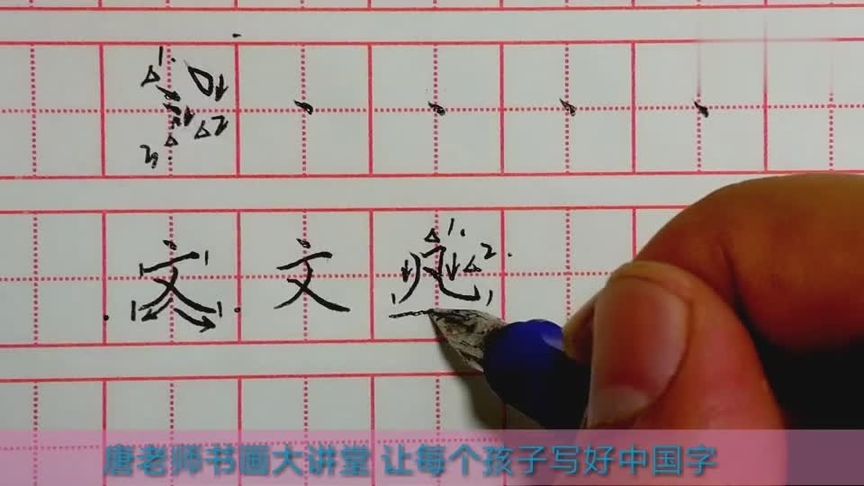 1
2
3
文 文
1 2
唐老师书画大讲堂 让每个孩子写好中国字